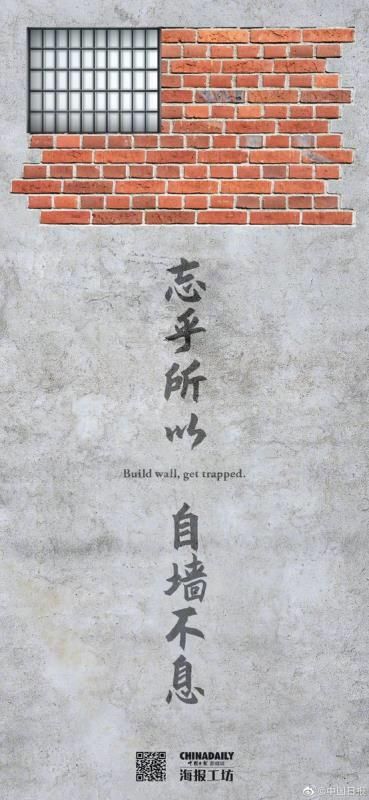 志乎所以
Build wall, get trapped.
自墙不息
CHINADAILY
海报工坊
@中国日报